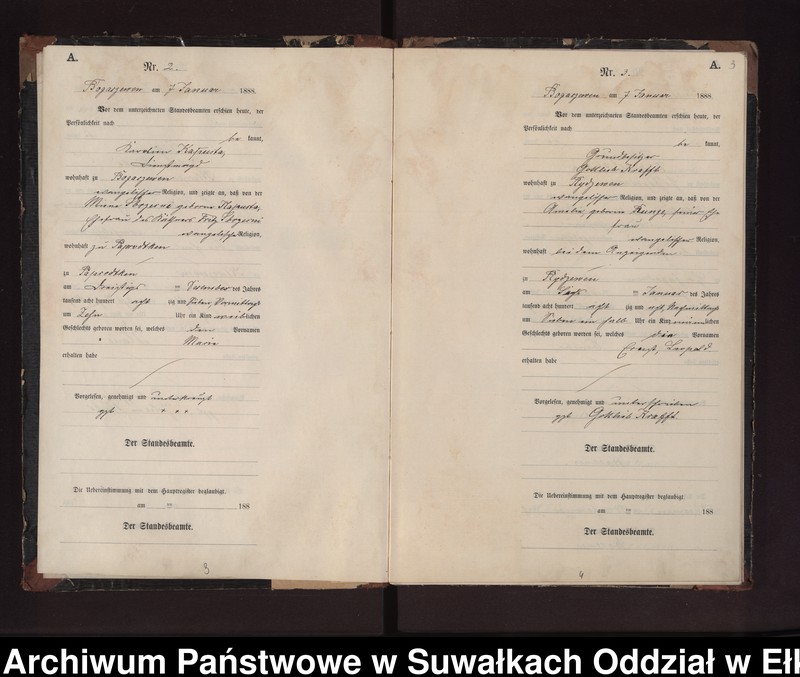 A.
Nr. 2.
am 7 Januar 1888.
Vor dem unterzeichneten Standesbeamten erschien heute, der
Persönlichkeit nach
be kannt,
Kapusta,
Dienstmagd
wohnhaft zu
evangelischer Religion, und zeigte an, daß von der
geborene Kapusta,
Ehefrau des Fritz
evangelische Religion,
wohnhaft zu Paprodtken
zu Paprodtken
am Dezember des Jahres
tausend acht hundert acht zig und sieben, Vormittags
um Zehn Uhr ein Kind weiblichen
Geschlechts geboren worden sei, welches den Vornamen
Marie
erhalten habe
Vorgelesen, genehmigt und unterkreuzt
ggz. + + +
Der Standesbeamte.
Die Uebereinstimmung mit dem Hauptregister beglaubigt.
am ten 188
Der Standesbeamte.
3
A. 3
Nr. 3.
am 7 Januar 1888.
Vor dem unterzeichneten Standesbeamten erschien heute, der
Persönlichkeit nach
be kannt,
Grundbesitzer
Gottlieb Krafft
wohnhaft zu Rydzewen
evangelischer Religion, und zeigte an, daß von der
Amalie, geborene seiner Ehe
frau
evangelischer Religion,
wohnhaft bei dem Anzeigenden
zu Rydzewen
am ten Januar des Jahres
tausend acht hundert acht zig und acht, Nachmittags
um Sieben ein halb Uhr ein Kind männlichen
Geschlechts geboren worden sei, welches die Vornamen
Ernst, Leopold
erhalten habe
Vorgelesen, genehmigt und unterschrieben
ggz. Gottlieb Krafft.
Der Standesbeamte.
Die Uebereinstimmung mit dem Hauptregister beglaubigt.
am ten 188
Der Standesbeamte.
4
Archiwum Państwowe w Suwałkach Oddział w Ełk